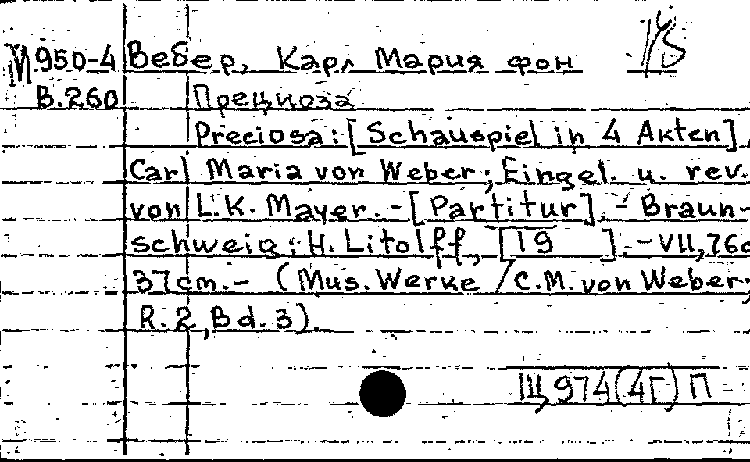 М950-4 Вебер, Карл Мария фон
В.260 Прециоза
Preciosa: [Schauspiel in 4 Akten].
Carl Maria von Weber; Eingel. u. rev.
von L.K. Mayer. - [Partitur]. - Braun-
schweig: H. Litolff, [19 ]. - VII, 76c
37cm. - (Mus. Werke / C.M. von Weber;
R. 2, Bd. 3).
Щ974(4Г)П